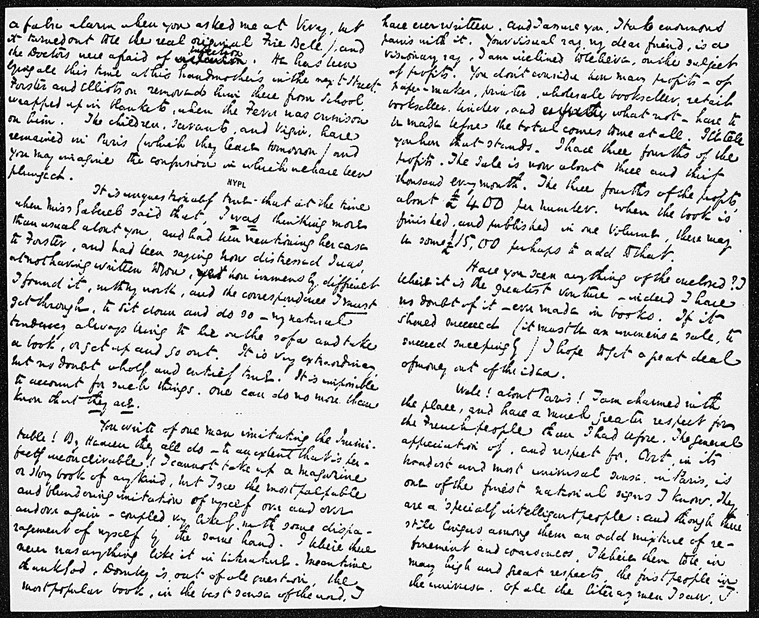 a false alarm when you asked me at Vevay, but
it turned out to be the real original Fire Bell / and
the Doctors were afraid of infection. He has been
all this time at his Grandmother's in the next Street
Forster and Elliotson removed him there from School,
wrapped up in blankets, when the Fever was crimson
on him. The children, servants, and Virgin, have
remained in Paris (which they leave tomorrow) and
you may imagine the confusion in which we have been
plunged.
NYPL
It is unquestionably true that at the time
when Miss said that, I was thinking more
than usual about you, and had been mentioning her case
to Forster, and had been saying how distressed I was
at not having written to you, yet how immensely difficult
I found it, with my work, and the correspondence I must
get through, to sit down and do so – my natural
tendency always being to lie on the sofa and take
a book, or get up and go out. It is very extraordinary,
but no doubt wholly and entirely true. It is impossible
to account for such things. One can do no more than
know that they are.
You write of one man imitating the Inimi-
table! By Heaven they all do – to an extent that is per-
fectly inconceivable! I cannot take up a magazine
or story book of any kind, but I see the most palpable
and blundering imitation of myself over and over
and over again – coupled very likely with some dispa-
ragement of myself by the same hand. I believe there
never was anything like it in literature. Meantime
thank God, Dombey is, out of all question, the
most popular book, in the best sense of the word, I
have ever written. And I assure you, I take enormous
pains with it. Your visual ray, my dear friend, is a
visionary ray, I am inclined to believe, on the subject
of profits. You don't consider how many profits – of
paper-maker, printer, wholesale bookseller, retail
bookseller, binder, and what not – have to
be made before the total comes to me at all. I'll tell
you how that stands. I have three fourths of the
profits. The sale is now about three and thirty
thousand every month. The three fourths of the profits,
about £400 per number. When the book is
finished, and published in one Volume, there may
be some £15,00 perhaps to add to that.
Have you seen anything of the enclosed? I
believe it is the greatest venture – indeed I have
no doubt of it – ever made in books. If it
should succeed (it must be an immense sale, to
succeed sweepingly) I hope to get a great deal
of money out of the idea.
Well! about Paris! I am charmed with
the place, and have a much greater respect for
the French people than I had before. The general
appreciation of, and respect for, Art, in its
broadest and most universal sense, in Paris, is
one of the finest national signs I know. They
are a specially intelligent people: and though there
still lingers among them an odd mixture of re-
finement and coarseness, I believe them to be, in
many high and great respects, the first people in
the universe. Of all the literary men I saw, I